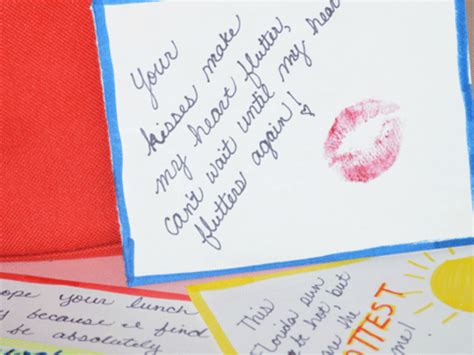 Your
kisses make
my heart flutter,
can't wait until my heart
flutters again!
ope your lunch
y because I find
be absolutely
This
Florida sun
be hot but
are the
OTTEST